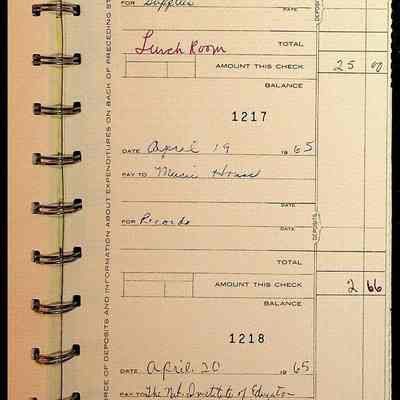 FOR Supplies
DATE
Lunch Room TOTAL
AMOUNT THIS CHECK 25 00
BALANCE
1217
DATE April 19 1965
PAY TO Music House
DATE
FOR Records
DATE
TOTAL
AMOUNT THIS CHECK 2 66
BALANCE
1218
DATE April 20 1965
PAY TO The Nat. Institute of
DEPOSITS
DEPOSITS
RCE OF DEPOSITS AND INFORMATION ABOUT EXPENDITURES ON BACK OF PRECEDING ST